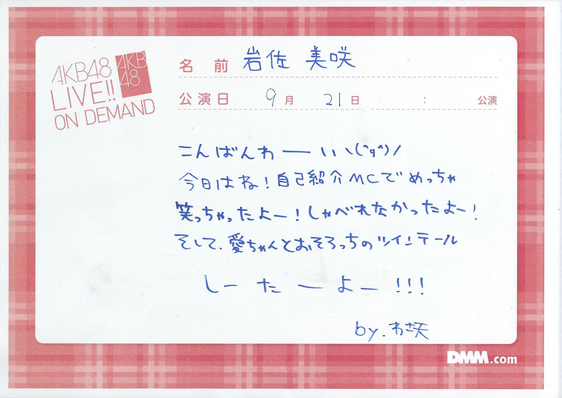 AKB48
LIVE!!
ON DEMAND
AKB
48
名 前 岩佐 美咲
公演日 9月 21日 : 公演
こんばんわーいヽ(^q^)ノ
今日はね!自己紹介MCでめっちゃ
笑っちゃったよー!しゃべれなかったよー!
そして、愛ちゃんとおそろっちのツインテール
しーたーよー!!!
by.わさ
DMM.com